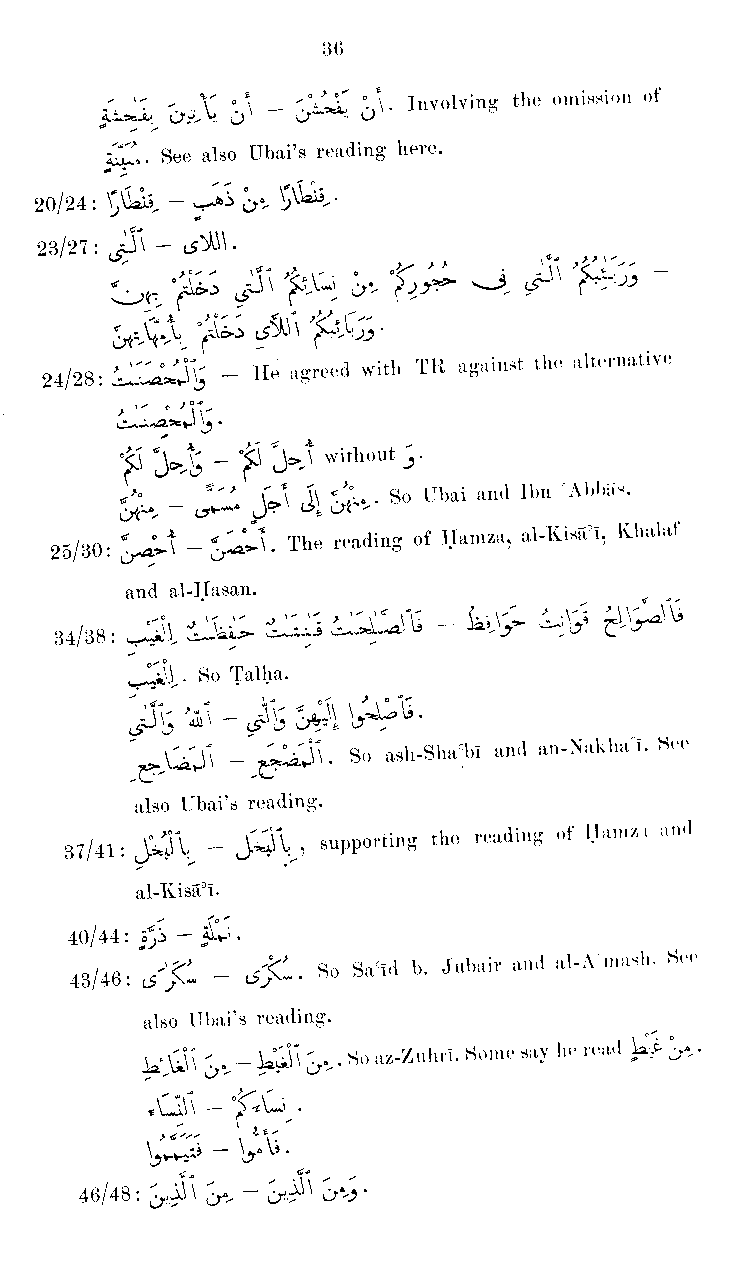 36
أَنْ يَأْتِينَ بِفَٰحِشَةٍ – أَنْ يَفْحُشْنَ. Involving the omission of
مُبَيِّنَةٍ. See also Ubai's reading here.
20/24: قِنْطَارًا – قِنْطَارًا مِنْ ذَهَبٍ.
23/27: ٱلَّٰتِي – اللاى.
وَرَبَٰٓئِبُكُمُ ٱلَّٰتِي فِى حُجُورِكُمْ مِنْ نِسَائِكُمُ ٱلَّٰتِي دَخَلْتُمْ بِهِنَّ –
وَرَبَائِبُكُمُ ٱللَّاَي دَخَلْتُمْ بِأُمَّهَاتِهِنَّ.
24/28: وَٱلْمُحْصَنَٰتُ – He agreed with TR against the alternative
وَٱلْمُحْصِنَٰتُ.
وَأُحِلَّ لَكُمْ – أُحِلَّ لَكُمْ without وَ.
مِنْهُنَّ – مِنْهُنَّ إِلَى أَجَلٍ مُسَمًّى. So Ubai and Ibn ʿAbbās.
25/30: أُحْصِنَّ – أَحْصَنَّ. The reading of Ḥamza, al-Kisāʾī, Khalaf
and al-Ḥasan.
34/38: فَٱلصَّٰلِحَٰتُ قَٰنِتَٰتٌ حَٰفِظَٰتٌ لِلْغَيْبِ – فَٱلصَّوَالِحُ قَوَانِتُ حَوَافِظُ
لِلْغَيْبِ. So Ṭalḥa.
ٱللّٰهُ وَٱلَّٰتِي – فَٱصْلِحُوا إِلَيْهِنَّ وَٱلَّٰتِي.
ٱلْمَضَاجِعِ – ٱلْمَضْجَعِ. So ash-Shaʿbī and an-Nakhaʿī. See
also Ubai's reading.
37/41: بِٱلْبُخْلِ – بِٱلْبَخَلِ, supporting the reading of Ḥamza and
al-Kisāʾī.
40/44: ذَرَّةٍ – نَمْلَةٍ.
43/46: سُكَٰرَى – سُكْرَى. So Saʿīd b. Jubair and al-Aʿmash. See
also Ubai's reading.
مِنَ ٱلْغَائِطِ – مِنَ ٱلْغَيْطِ. So az-Zuhrī. Some say he read مِنْ غَيْطٍ.
ٱلنِّسَاء – نِسَاءَكُمْ.
فَتَيَمَّمُوا – فَأُمُّوا.
46/48: مِنَ ٱلَّذِينَ – وَمِنَ ٱلَّذِينَ.